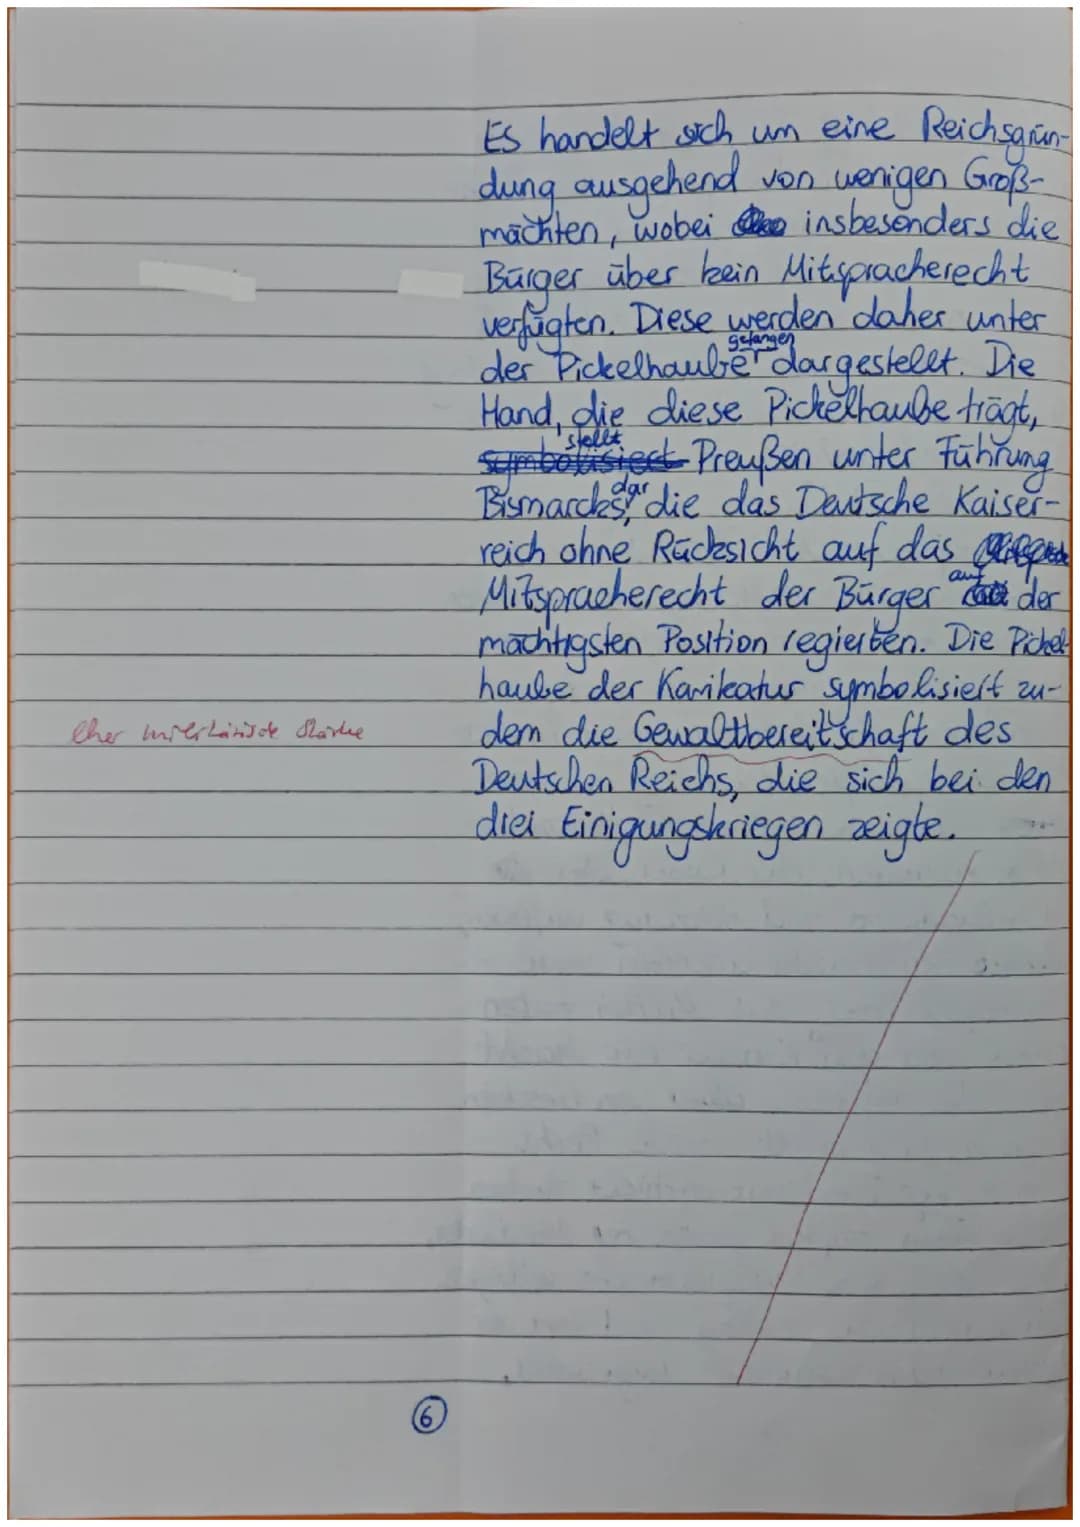 Es handelt sich um eine Reichsgrün-
dung ausgehend von wenigen Groß-
mächten, wobei insbesonders die
Bürger über kein Mitspracherecht
verfügten. Diese werden daher unter
gefangen
der Pickelhaube dargestellt. Die
Hand, die diese Pickelhaube trägt,
stellt
symbolisiert Preußen unter Führung
dar
Bismarcks, die das Deutsche Kaiser-
reich ohne Rücksicht auf das
auf
Mitspracherecht der Bürger der
mächtigsten Position regierten. Die Pickel-
haube der Karikatur symbolisiert zu-
eher militärische Stärke
dem die Gewaltbereitschaft des
Deutschen Reichs, die sich bei den
drei Einigungskriegen zeigte.
6